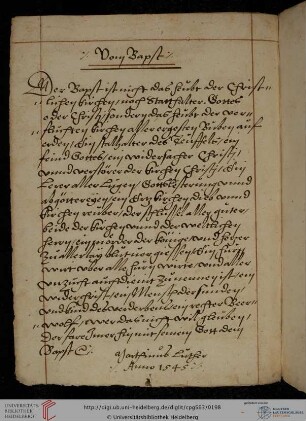 Vom Bapst
Der Bapst ist nicht das heubt der Christ-
lichen kirchen, noch Statthalter Gottes
oder Christj, sondern das heubt der ver-
fluchten kirchen aller ergesten Buben auf
erden, Ein statthalter des Teuffels, ein
feind Gottes, ein widersacher Christj,
vnnd verstörer der kirchen Christj, Ein
Lerer aller Lügen, Gottlesterung, vnnd
abgöttereyen, ein Ertz kirchen dieb, vnnd
kirchen reuber, der schlussel, aller guter,
beide der kirchen, vnnd der weltlichen
hern, ein mörder der kunige, vnd hetzer
zu allerlay blut
wirt vber alle hurn wirte, vnd aller
vnzucht, auch die nit zu nennen ist, ein
widerchrist, ein Mensch der sunden,
vnd kind des verderbens, ein rechter Beer-
wolff, wer das nicht wil glauben,
Der fare Immer hin mit seinem Gott dem
Bapst
Martinus Luther
Anno 1545
UNIVERSITÄTS-
BIBLIOTHEK
HEIDELBERG
http://digi.ub.uni-heidelberg.de/diglit/cpg553/0198
© Universitätsbibliothek Heidelberg
gefördert durch